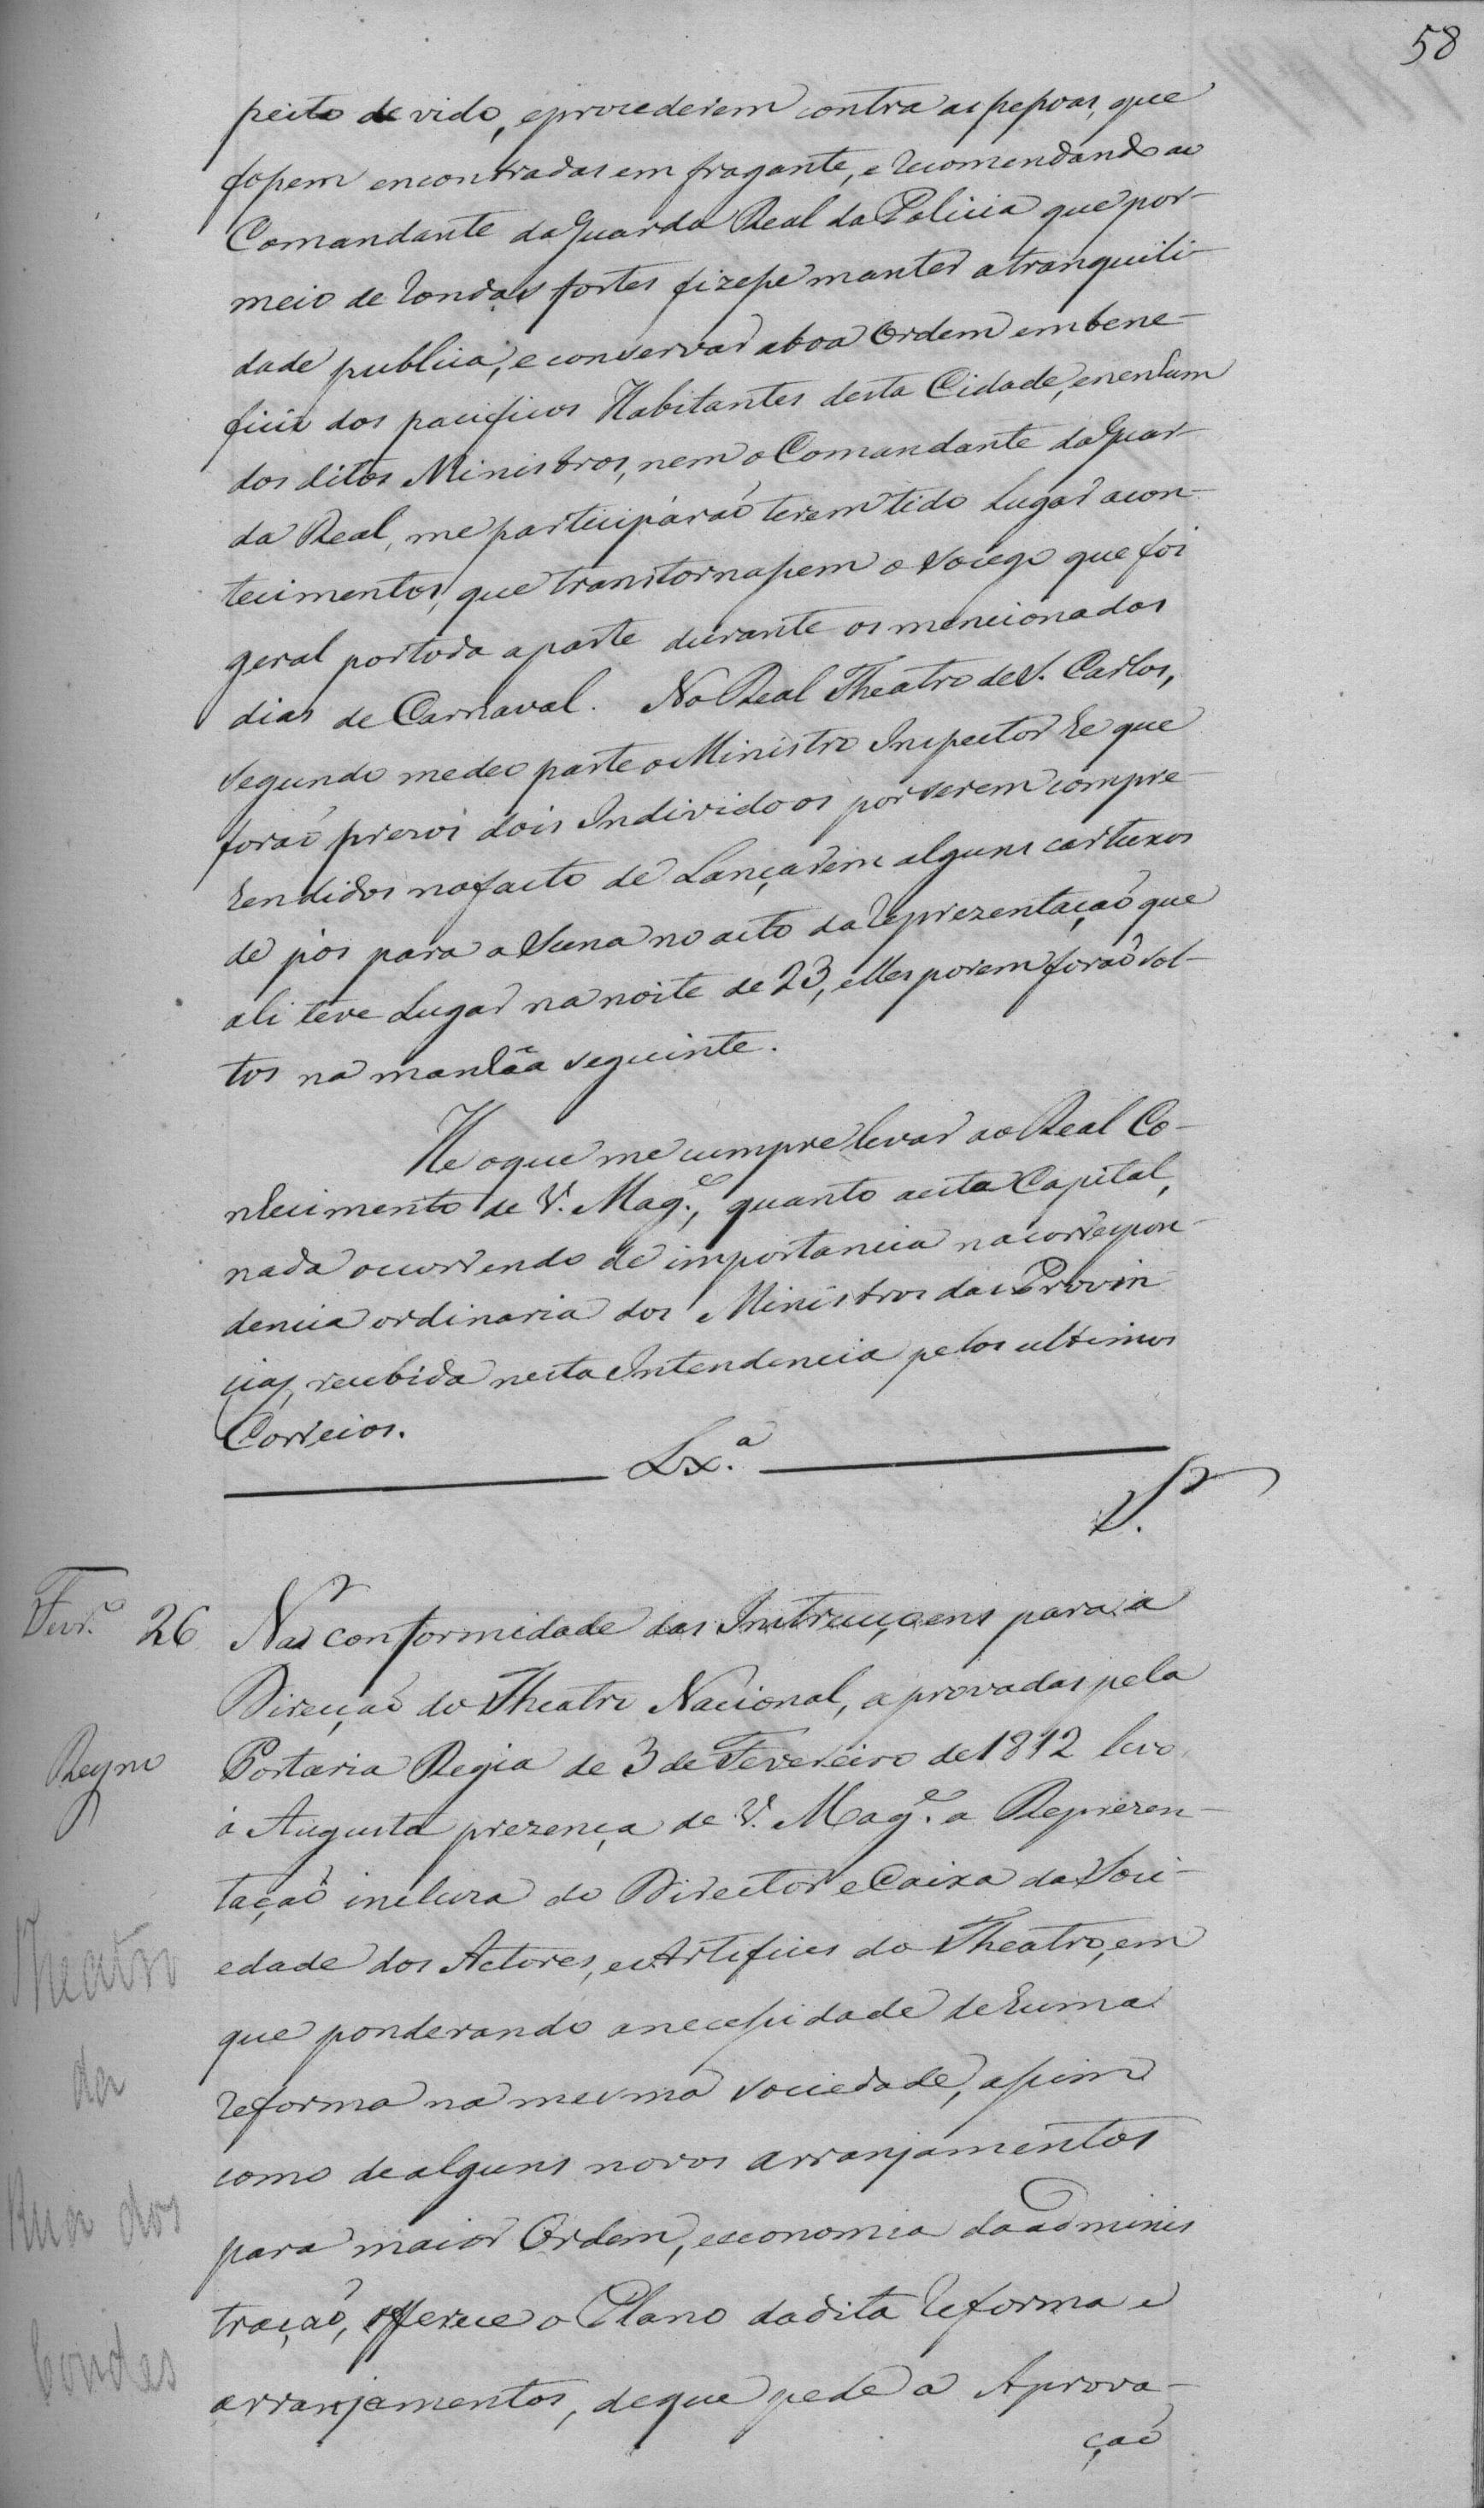 58
peito devido, e procederem contra as pessoas, que
fossem encontradas em fragante, e recomendando ao
Comandante da Guarda Real da Policia que por-
meio de rondas fortes fizesse manter a tranquili-
dade publica, e conservar a boa Ordem em bene-
ficio dos pacificos Habitantes desta Cidade, e nenhum
dos ditos Ministros, nem o Comandante da Guar-
da Real, me participárão terem tido Lugar acon-
tecimentos, que transtornassem o socego que foi
geral por toda a parte durante os mencionados
dias de Carnaval. No Real Theatro de S. Carlos,
segundo me deo parte o Ministro Inspector he que
forão prezos dois Individoos por serem compre-
hendidos no facto de Lançarem alguns cartuxos
de pós para a Scena no acto da reprezentação que
ali teve Lugar na noite de 23, elles porem forão sol-
tos na manhãa seguinte.
He o que me cumpre levar ao Real Co-
nhecimento de V. Mag.e, quanto a esta Capital,
nada ocorrendo de importancia na correspon-
dencia ordinaria dos Ministros das Provin
cias, recebida nesta Intendencia pelos ultimos
Correios.
Lx.a
S.r
Fevr.o 26 Na conformidade das Instrucçoens para a
Direcção do Theatro Nacional, aprovadas pela
Reyno
Portaria Regia de 3 de Fevereiro de 1812 levo
á Augusta prezença de V. Mag.e a Reprezen-
tação incluza do Director e Caixa da Soci-
edade dos Actores, e Artifices do Theatro, em
que ponderando a necessidade de huma
reforma na mesma sociedade, assim
como de alguns novos arranjamentos
para maior Ordem, e economia da adminis
tração, offerece o Plano da dita reforma e
arranjamentos, de que pede a Aprova-
ção
Theatro
da
Rua dos
Condes